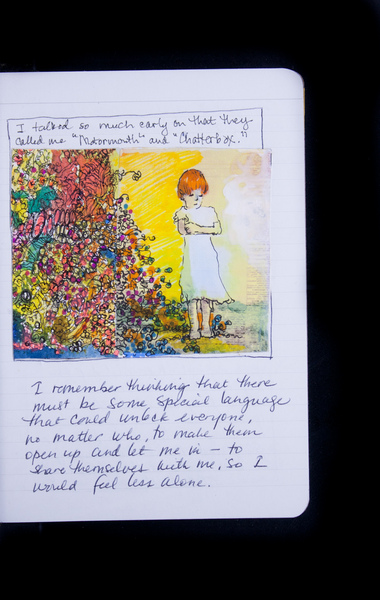 I talked so much early on that they
called me "Motormouth" and "Chatterbox."
I remember thinking that there
must be some special language
that could unlock everyone,
no matter who, to make them
open up and let me in — to
share themselves with me, so I
would feel less alone.